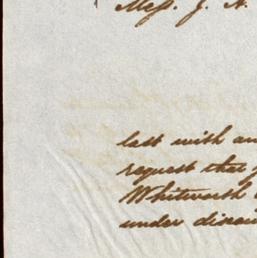 Mess. J. A.
last with an
request that
Whitworth
under